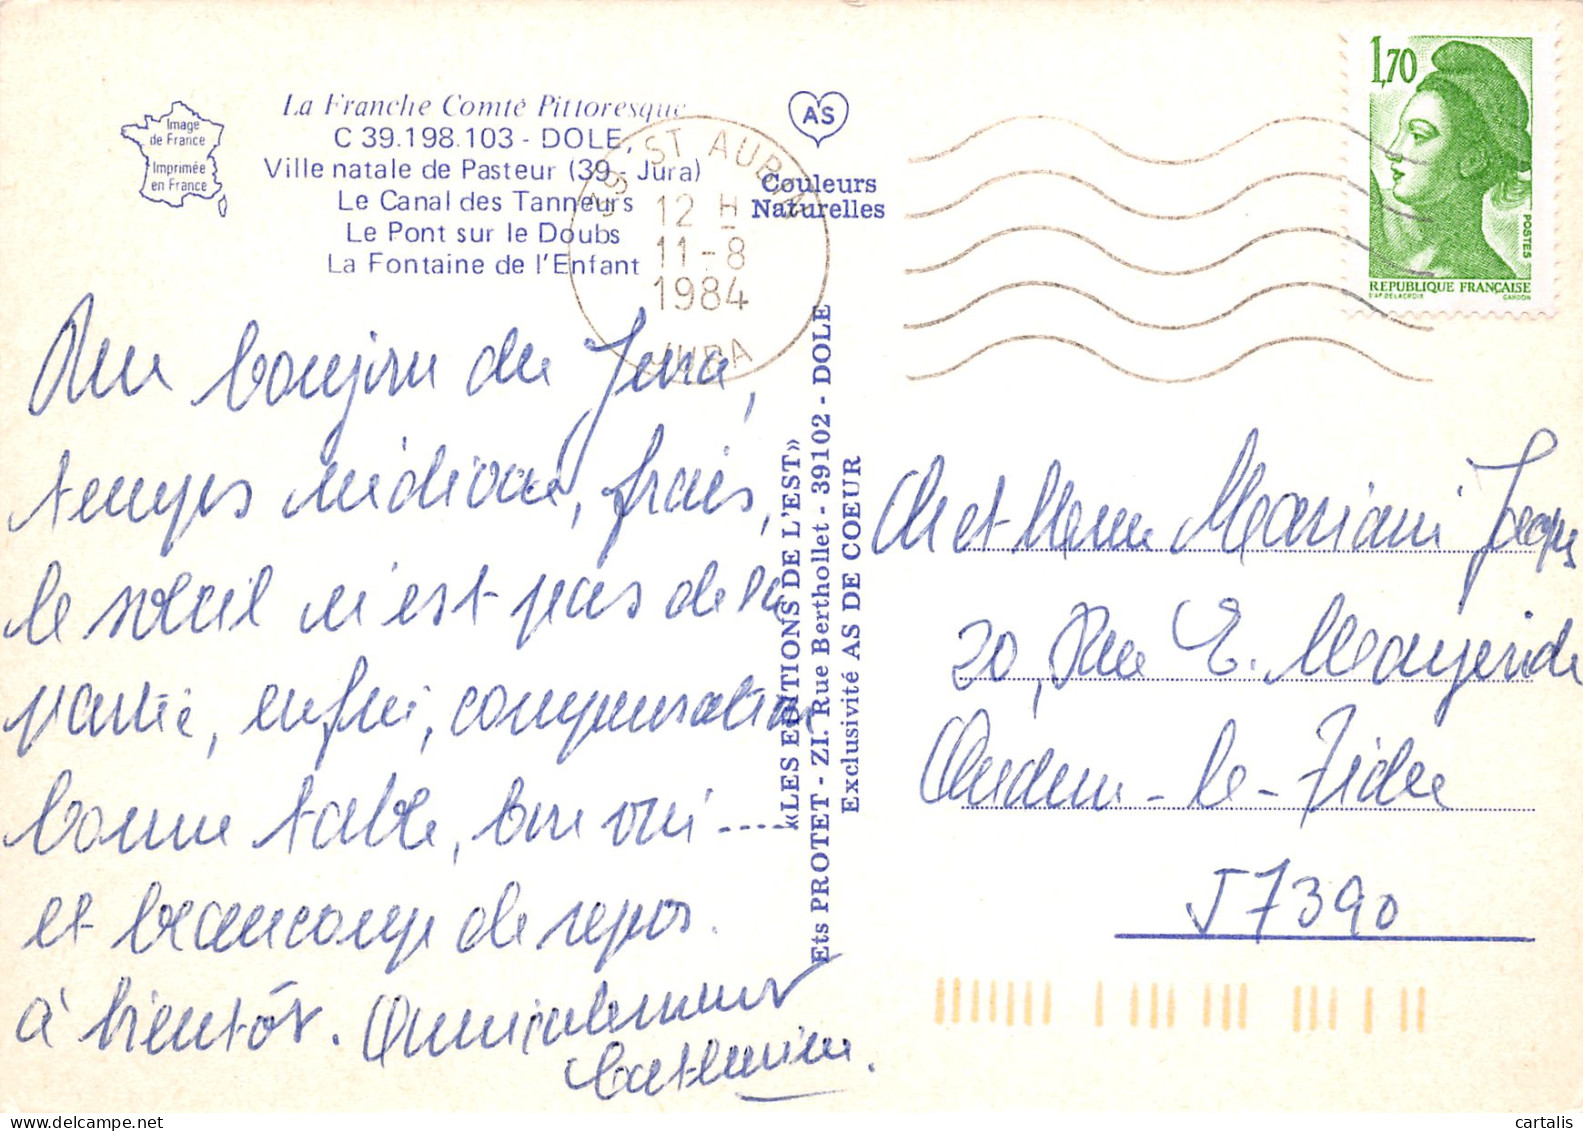 La Franche Comté Pittoresque
C 39.198.103 - DOLE,
Ville natale de Pasteur (39 - Jura)
Le Canal des Tanneurs
Le Pont sur le Doubs
La Fontaine de l'Enfant
Image
de France
Imprimée
en France
AS
Couleurs
Naturelles
39 ST AUBIN
12 H
11-8
1984
JURA
1,70
POSTES
REPUBLIQUE FRANÇAISE
D'AP. DELACROIX GANDON
«LES EDITIONS DE L'EST»
Ets PROTET - ZI. Rue Berthollet - 39102 - DOLE
Exclusivité AS DE COEUR
Un bonjour du Jura,
temps médiocre, frais,
le soleil n'est pas de la
partie, enfin, compensation
bonne table, bon vin ----
et beaucoup de repos.
à bientôt. Amicalement
Catherine.
Mr et Mme Mariani
20, Rue E.
Audun-le-Tiche
57390
cartalis